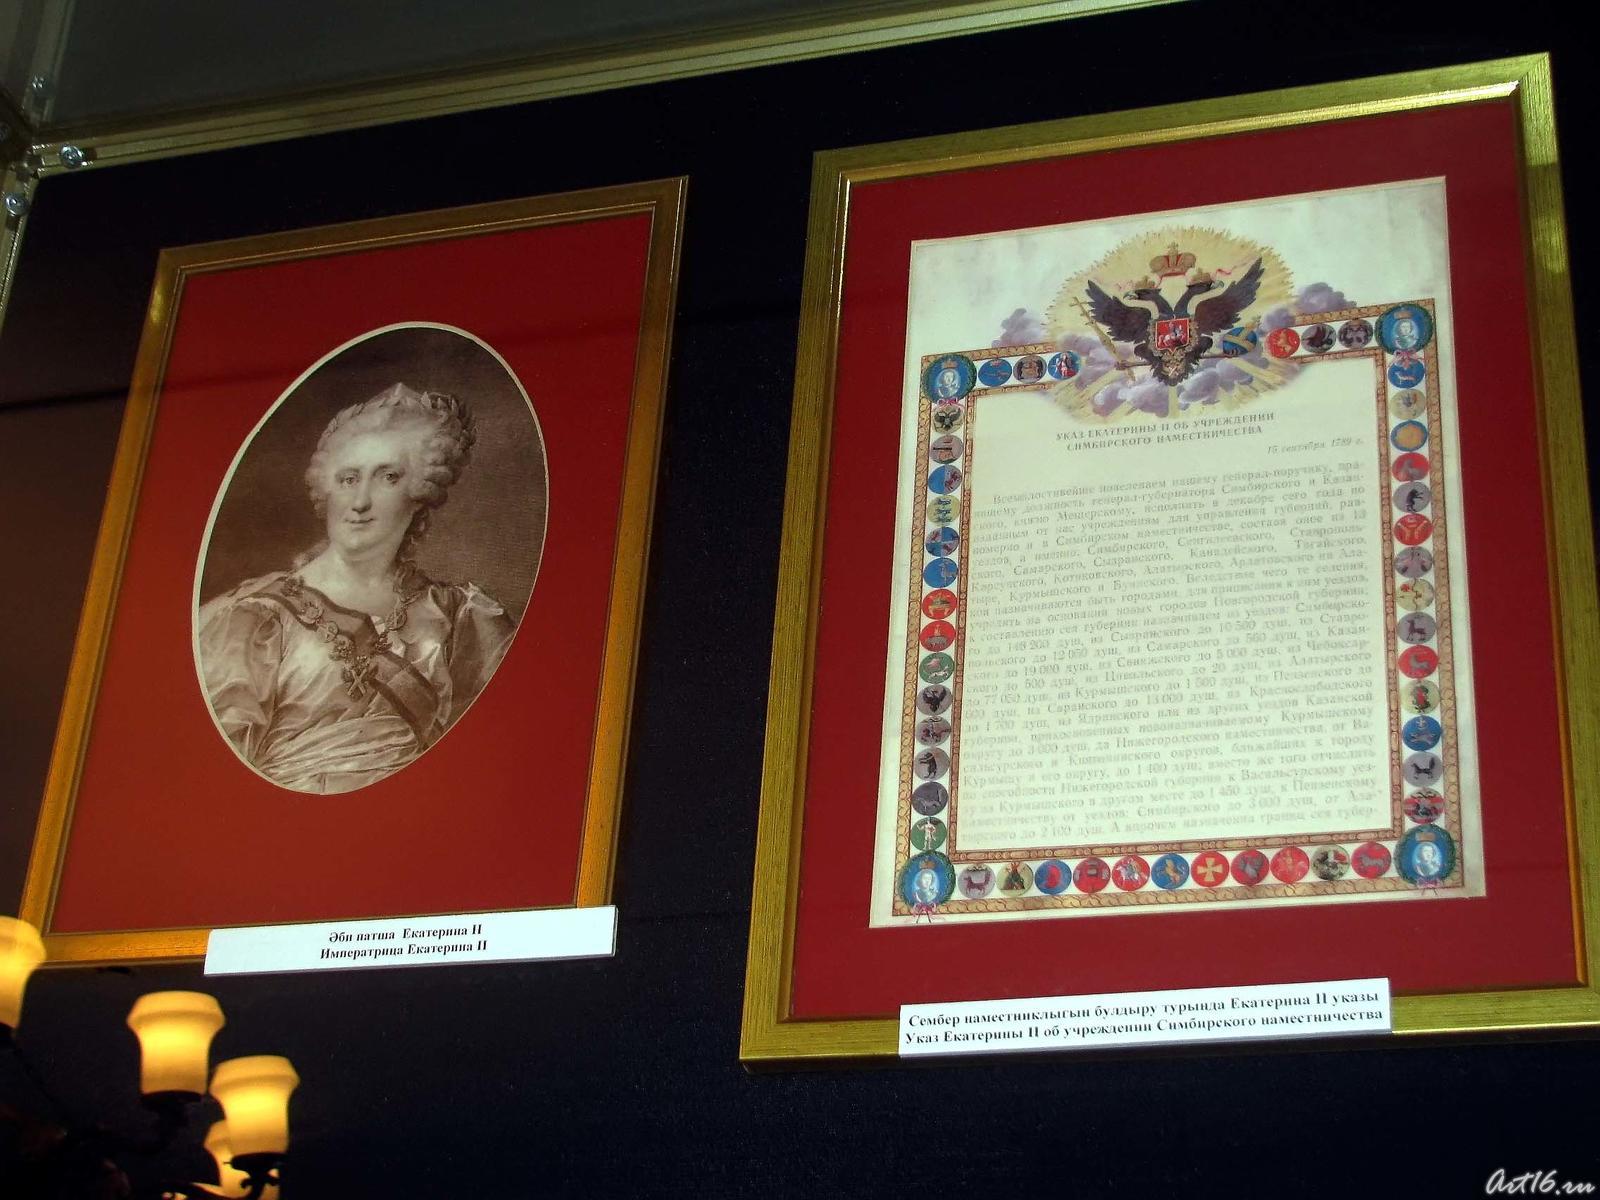 Әби патша Екатерина II
Императрица Екатерина II
УКАЗ ЕКАТЕРИНЫ II ОБ УЧРЕЖДЕНИИ
СИМБИРСКОГО НАМЕСТНИЧЕСТВА
15 сентября 1780 г.
Всемилостивейше повелеваем нашему генерал-поручику, пра-
вящему должность генерал-губернатора Симбирского и Казан-
ского, князю Мещерскому, исполнить в декабре сего года по
изданным от нас учреждениям для управления губерний, рав-
номерно и в Симбирском наместничестве, составя оное из 13
уездов, а именно: Симбирского, Сенгилеевского, Ставрополь-
ского, Самарского, Сызранского, Канадейского, Тагайского,
Карсунского, Котяковского, Алатырского, Ардатовского на Ала-
тыре, Курмышского и Буинского. Вследствие чего те селения,
кои назначаются быть городами, для приписания к ним уездов,
учредить на основании новых городов Новгородской губернии;
к составлению сея губернии назначаем из уездов: Симбирско-
го до 148 200 душ, из Сызранского до 10 500 душ, из Ставро-
польского до 12 050 душ, из Самарского до 560 душ, из Казан-
ского до 19 000 душ, из Свияжского до 5 000 душ, из Чебоксар-
ского до 500 душ, из Цивильского до 20 душ, из Алатырского
до 77 050 душ, из Курмышского до 1 500 душ, из Пензенского до
600 душ, из Саранского до 13 000 душ, из Краснослободского
до 1 700 душ, из Ядринского или из других уездов Казанской
губернии, прикосновенных новоназначаемому Курмышскому
округу до 3 000 душ, да Нижегородского наместничества, от Ва-
сильсурского и Княгининского округов, ближайших к городу
Курмышу и его округу, до 1 400 душ; вместо же того отчислить
по способности Нижегородской губернии к Васильсурскому уез-
ду из Курмышского в другом месте до 1 450 душ, к Пензенскому
наместничеству от уездов: Симбирского до 3 000 душ, от Ала-
тырского до 2 100 душ. А впрочем назначения границ сея губер-
Сембер наместниклыгын булдыру турында Екатерина II указы
Указ Екатерины II об учреждении Симбирского наместничества
Art16.ru